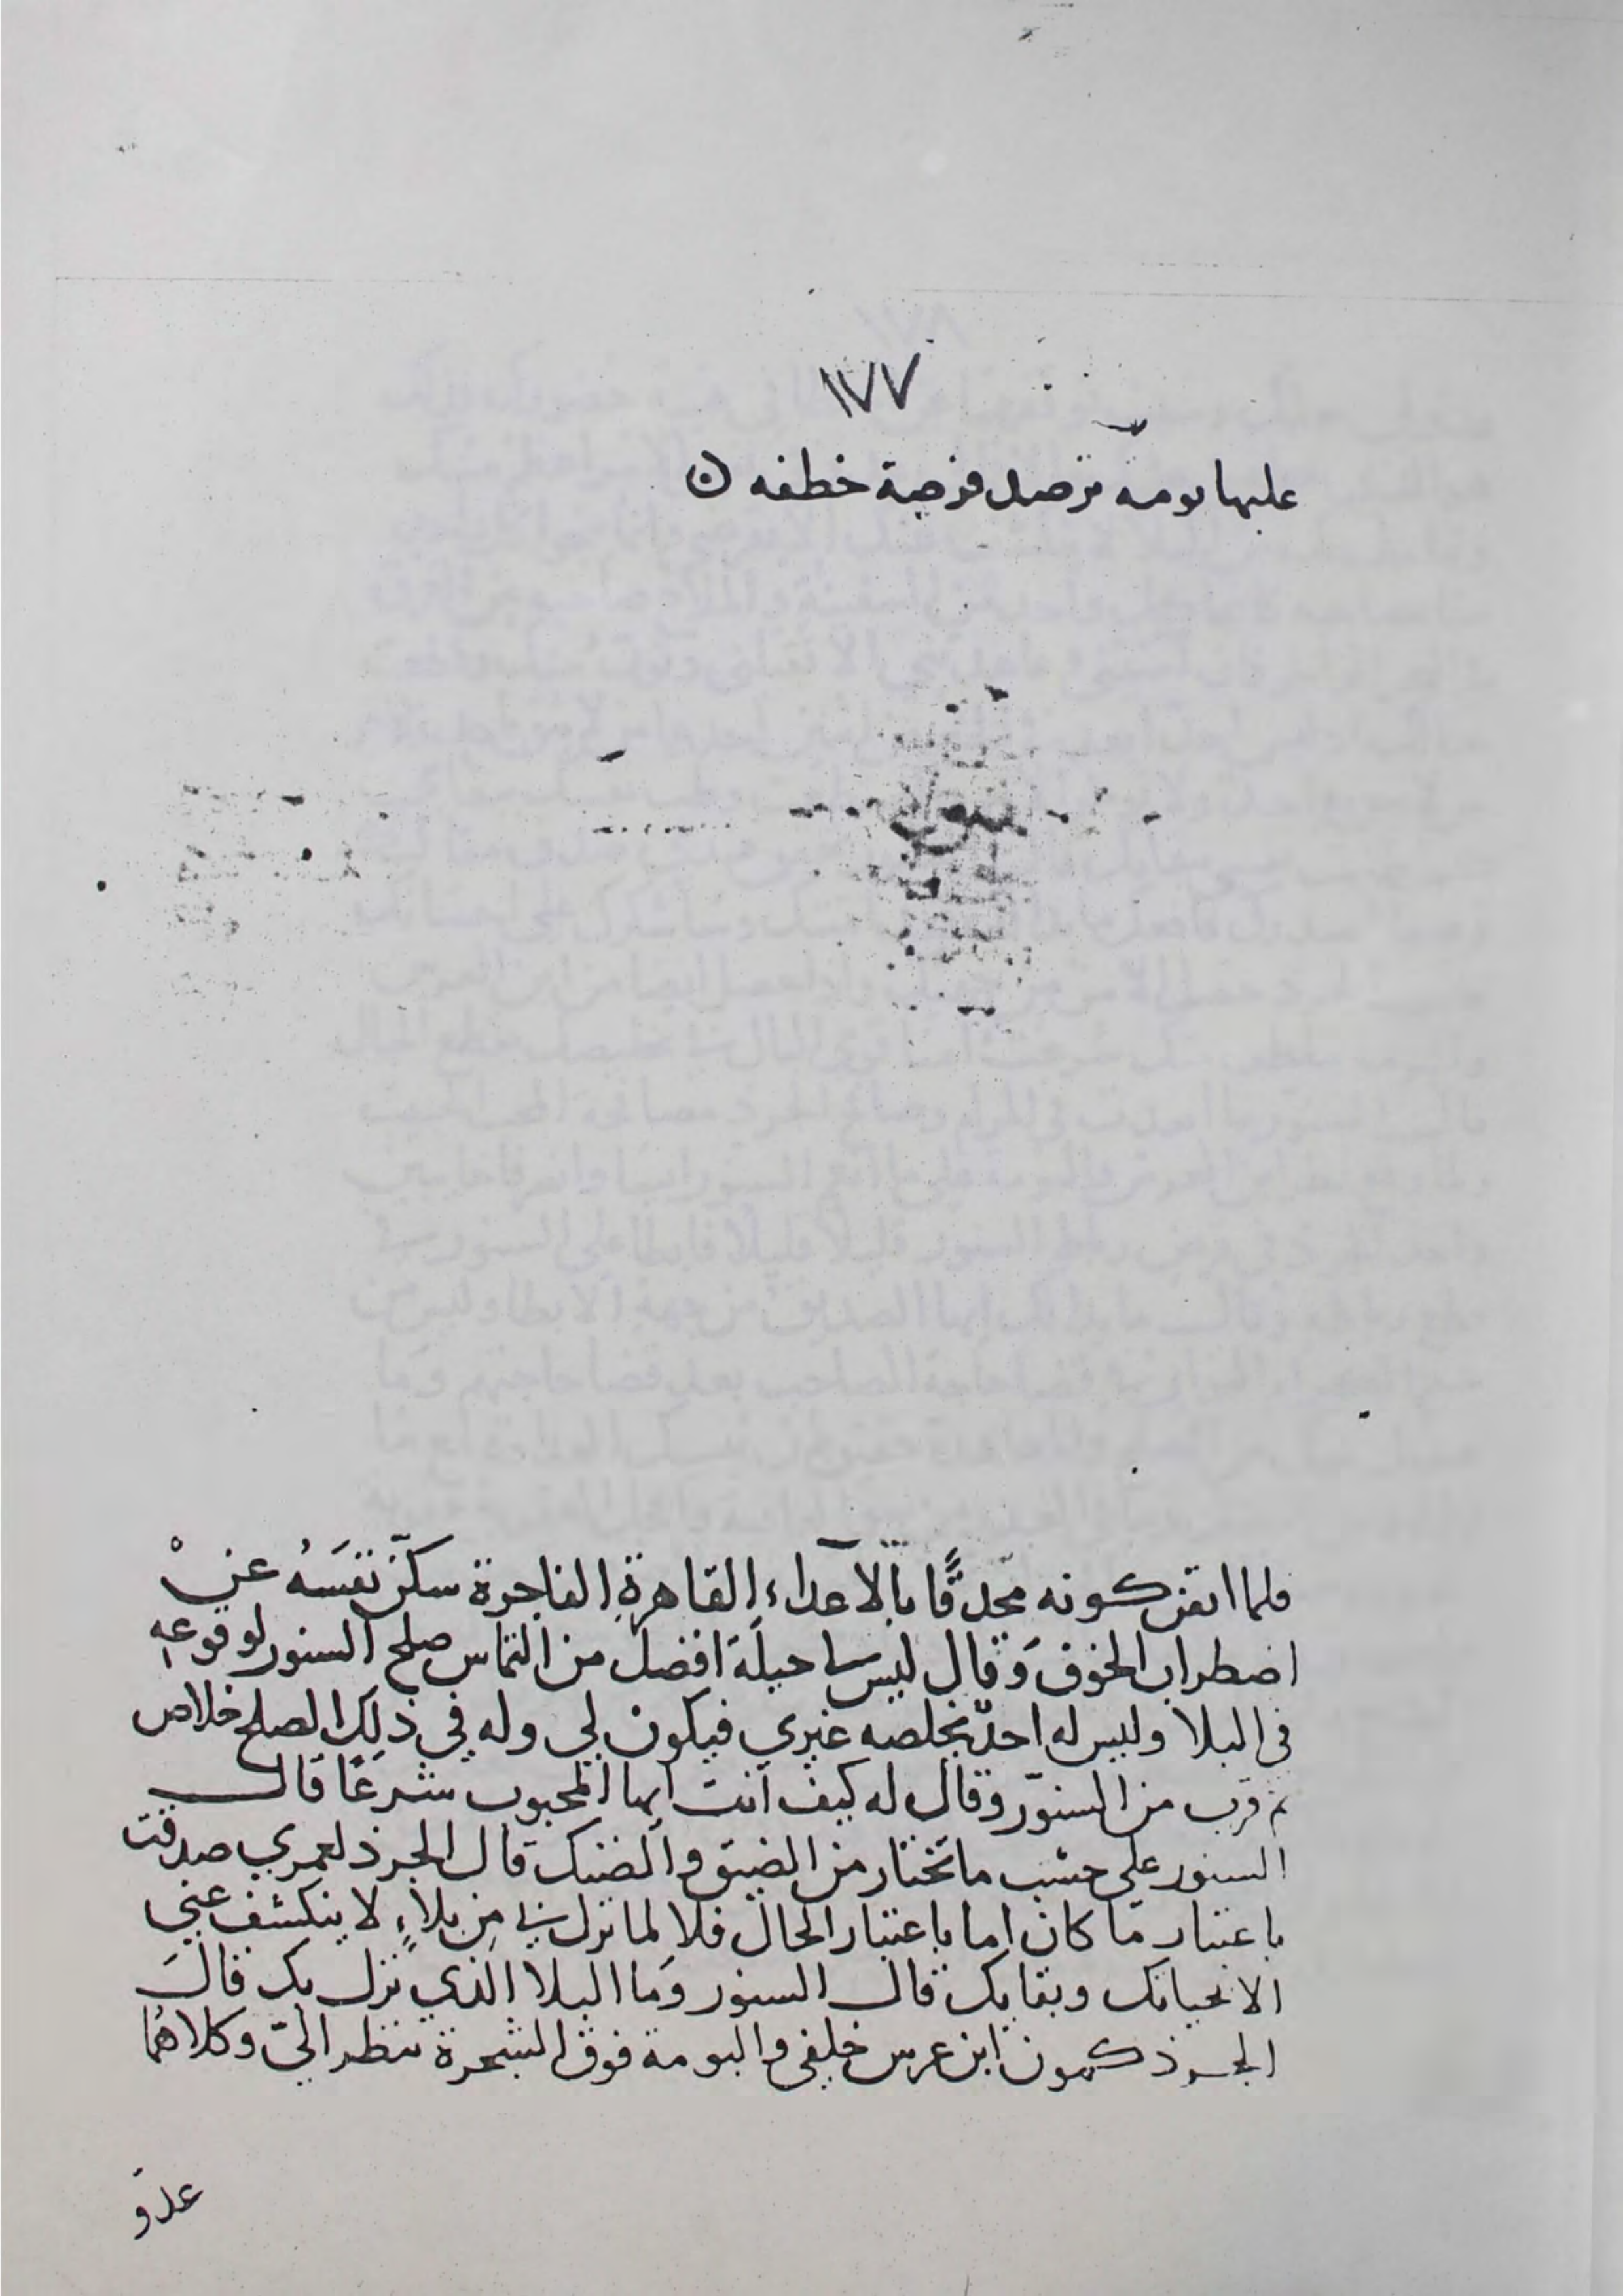 ١٧٧
عليها بومه ترصد فرصة خطفه
فلما اتقن كونه محدقًا بالاعداء القاهرة الفاجرة سكّن نفسَهُ عن
اضطراب الخوف وقال ليس لي حيلة افضل من التماس صلح السنور لوقوعه
فى البلا وليس له احدٌ يخلصه غيري فيكون لي وله في ذلك الصلح خلاص
ثم قرب من السنوّر وقال له كيف انت ايها المحبوب شرعًا قال
السنور على حسب ما تختار من الضيق والضنك قال الجرذ لعمري صدقت
باعتبار ما كان اما باعتبار الحال فلا لما نزل بي من بلاءٍ لا ينكشف عني
الا بحياتك وبقايك قال السنور وما البلا الذي نزل بك قال
الجرذ كمون ابن عرس خلفي والبومة فوق الشجرة تنظر اليّ وكلاهما
عدوّ